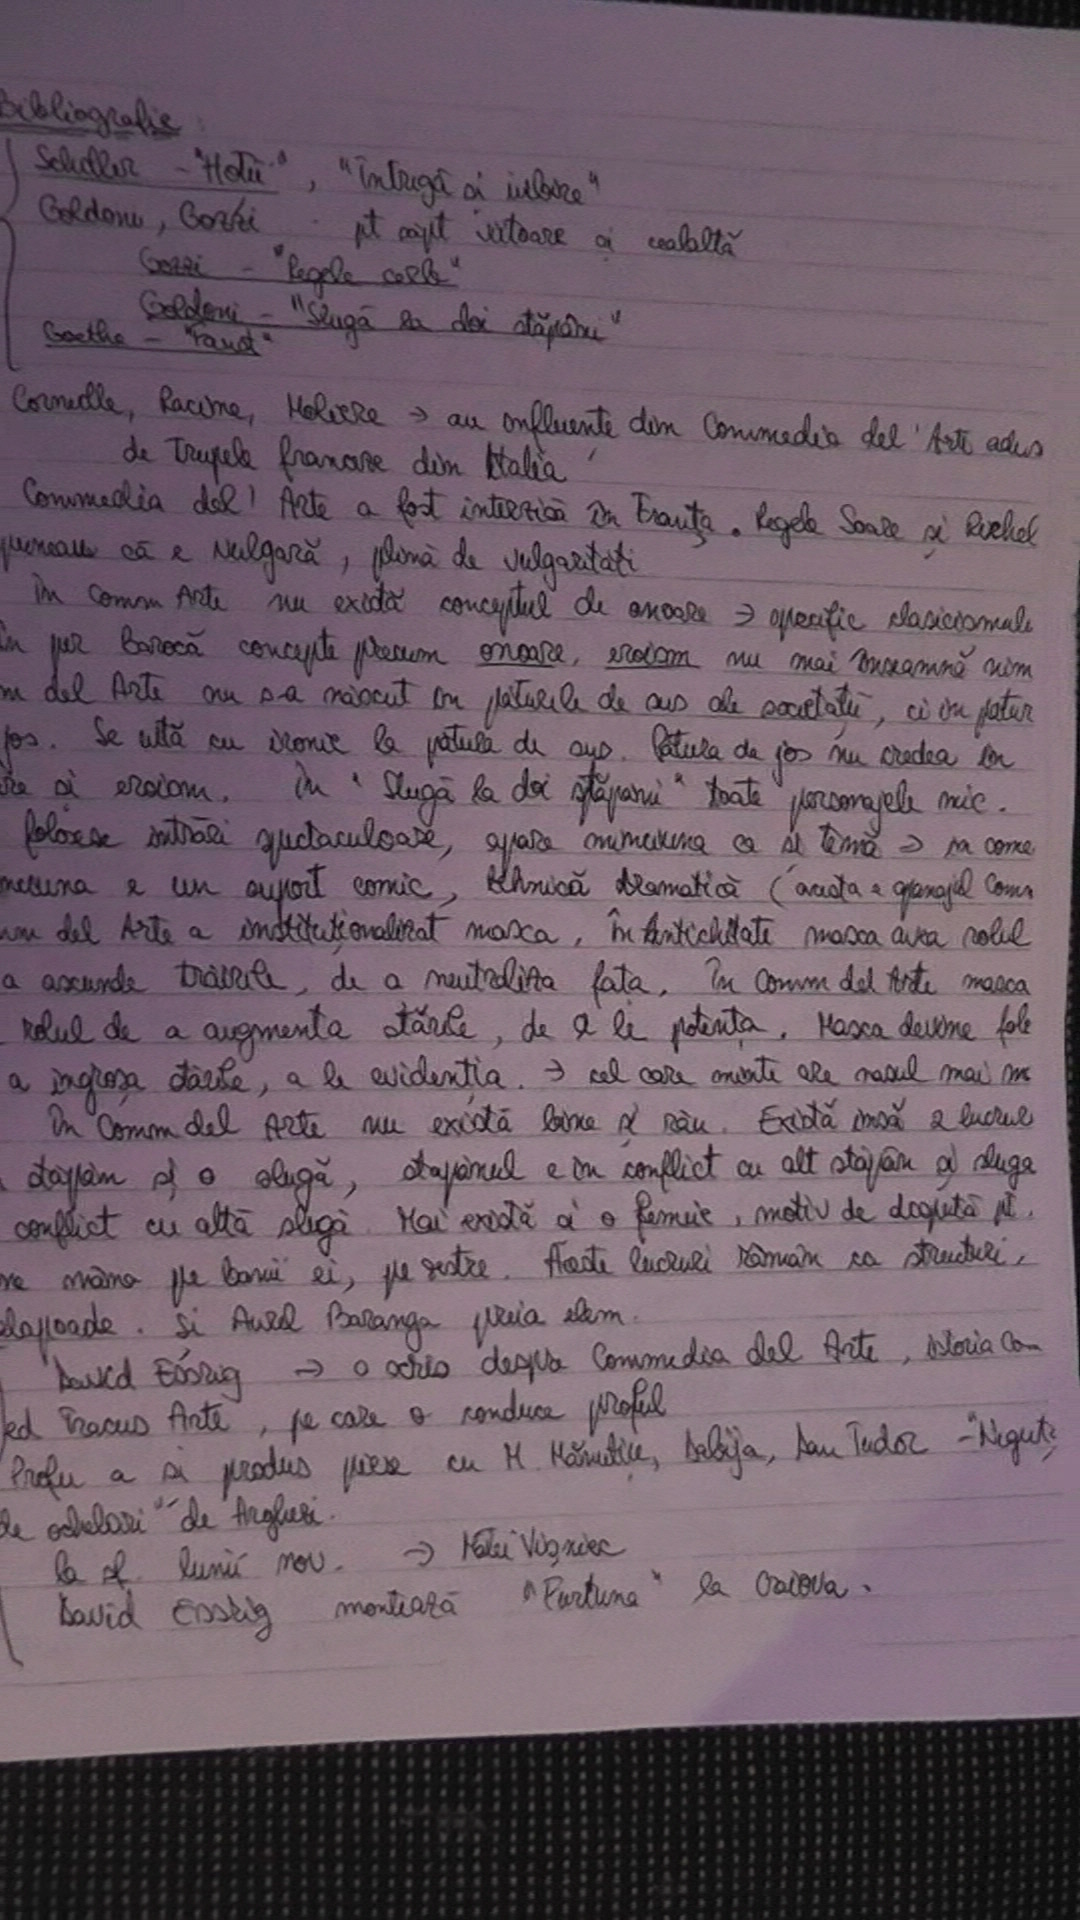 Bibliografie
Schiller - "Hoții", "Intrigă și iubire"
Goldoni, Gozzi pt săpt viitoare și cealaltă
Gozzi - "Regele cerb"
Goldoni - "Slugă la doi stăpâni"
Goethe - "Faust"
Corneille, Racine, Moliere → au influențe din Commedia del'Arte adus
de trupele franceze din Italia
Commedia del' Arte a fost interzică în Franța. Regele Soare și Richel
puneau că e vulgară, plină de vulgarități
În Comm Arte nu există conceptul de onoare → specific clasicismul
în per Barocă concepte precum onoare, eroism nu mai înseamnă nim
m del Arte nu s-a născut în păturile de sus ale societății, ci în pătur
jos. Se uită cu ironie la pătura de sus. Pătura de jos nu credea în
re și eroism. În "Slugă la doi stăpâni" toate personajele mic.
folosesc intrări spectaculoase, apare ca și temă →
e un suport comic, tehnică dramatică (acesta e apanajul Comm
mm del Arte a instituționalizat masca, în Antichitate masca avea rolul
a ascunde trăirile, de a neutraliza fața. În Comm del Arte masca
rolul de a augmenta stările, de a le potența. Masca devine fole
a îngroșa stările, a le evidenția. → cel care minte are nasul mai m
În Comm del Arte nu există bine și rău. Există însă 2 lucruri
stăpân și o slugă, stăpânul e în conflict cu alt stăpân și sluga
conflict cu altă slugă. Mai există și o femeie, motiv de dispută pt.
ne mâna pe banii ei, pe zestre. Aceste lucruri rămân ca structuri,
eșapoade. Și Aurel Baranga preia elem.
David Esrig → o scris despre Commedia del Arte, istoria Com
ed Fracus Arte, pe care o conduce proful
Profu a și produs piese cu M Măniuțiu, Dabija, Dan Tudor - "Neguț
de ochelari" de Arghezi.
la sf. lunii nov. → Matei Vișniec
David Esrig montează "Furtuna" la Craiova.